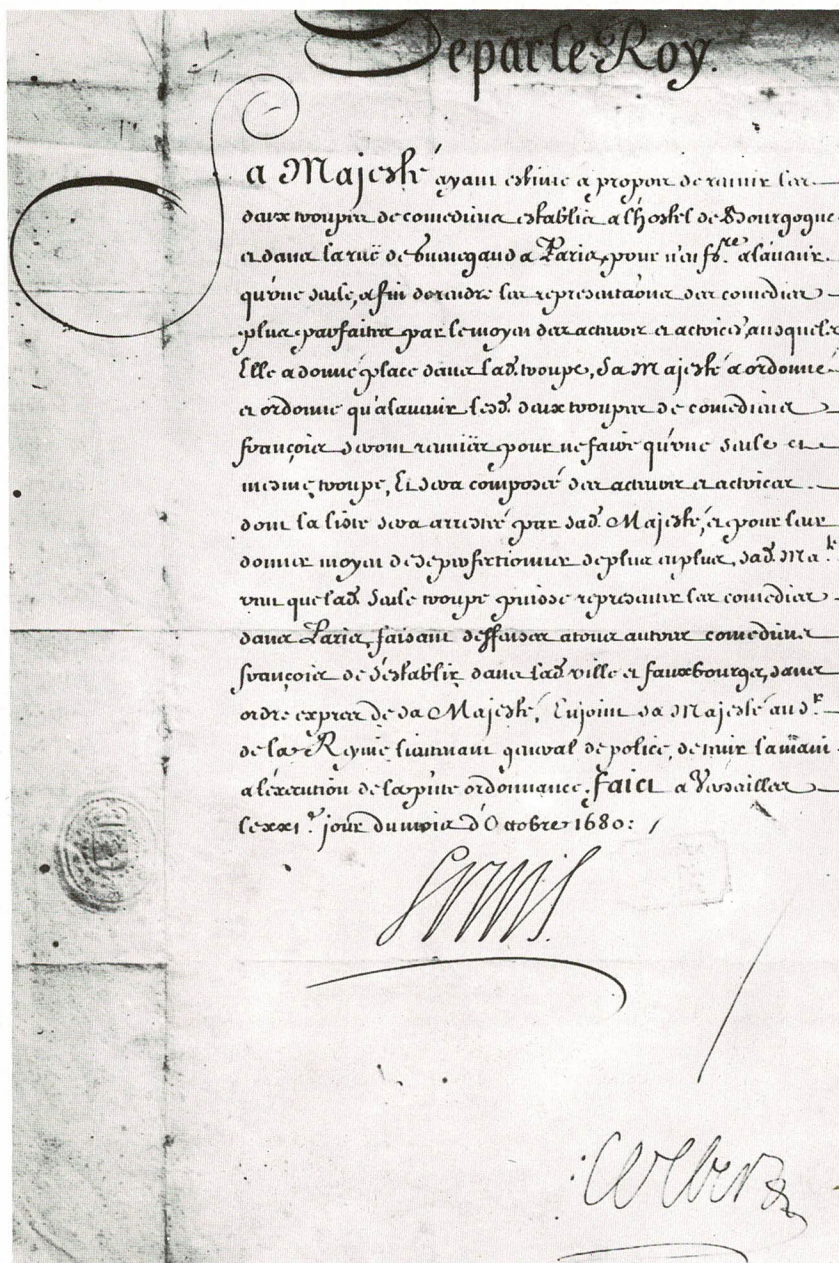 De par le Roy.
Sa Majesté ayant estimé a propos de reunir les
deux troupes de comediens establis a l'hostel de Bourgogne
et dans la rüe de Guenegaud a Paris, pour n'en f.re a l'avenir
qu'une seule, afin de rendre les representaons des comedies
plus parfaites par le moyen des acteurs et actrices, ausquels
Elle a donné place dans lad. troupe, Sa Majesté a ordonné
et ordonne qu'a l'avenir lesd. deux troupes de comediens
françois seront reunies pour ne faire qu'une seule et
mesme troupe, Et sera composée des acteurs et actrices
dont la liste sera arrestée par sad. Majesté, et pour leur
donner moyen de se perfectionner de plus en plus, sad. Ma.té
veut que lad. seule troupe puisse representer les comedies
dans Paris, faisant deffenses a tous autres comediens
françois de s'establir dans lad. ville et fauxbourgs, sans
ordre expres de sa Majesté, Enjoint sa Majesté au s.r
de la Reynie lieutenant general de police, de tenir la main
a l'éxecution de la pnte ordonnance. Faict a Versailles
le xxi.e jour du mois d'Octobre 1680:
Louis
Colbert